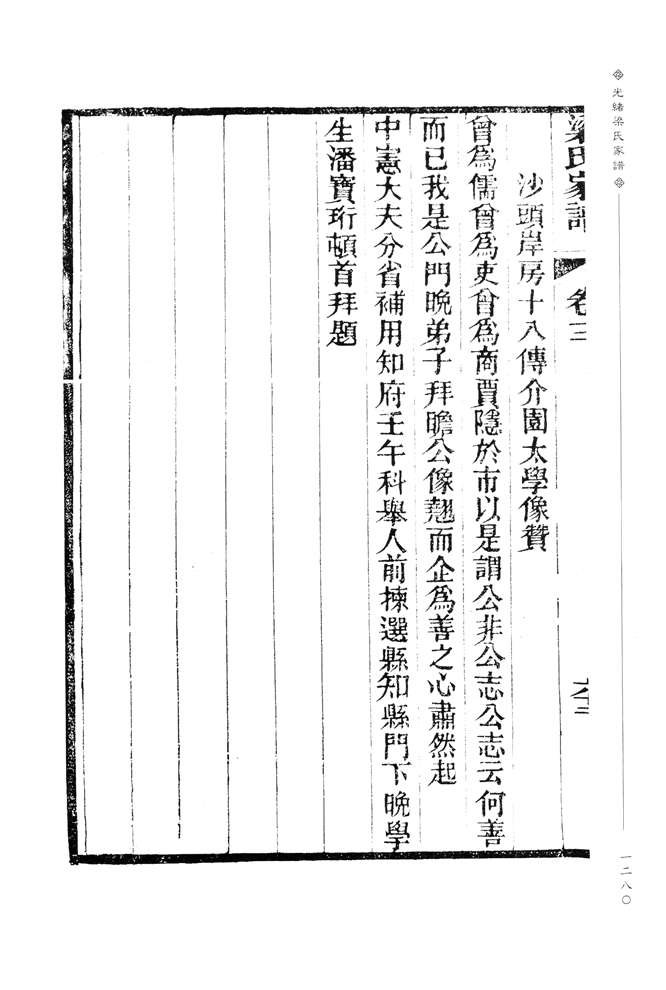 光緒梁氏家譜
梁氏家譜 卷三 六三
沙頭岸房十八傳介園太學像贊
曾為儒曾為吏曾為商賈隱於市以是謂公非公志公志云何善
而已我是公門晚弟子拜瞻公像翹而企為善之心肅然起
中憲大夫分省補用知府壬午科舉人前揀選縣知縣門下晚學
生潘寶珩頓首拜題
一二八〇